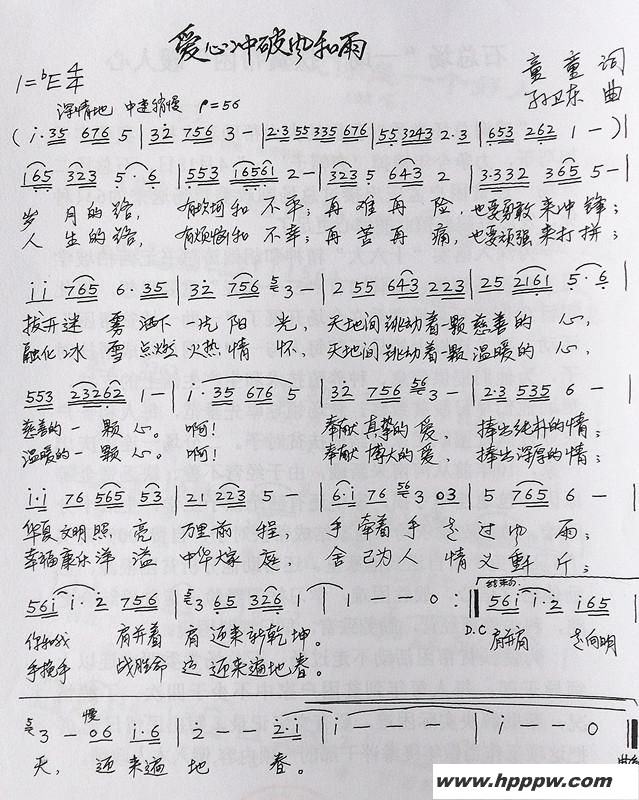 爱心冲破风和雨
1=bE 4/4
童童 词
孙卫东 曲
深情地 中速稍慢 ♩=56
(i·35 676 5 | 32 756 3 - | 2·3 55335 676 | 55 3243 2·3 | 653 262 1 - )|
165 323 5·6 | 553 16561 2 - | 3235 643 2 | 3·332 365 5 - |
岁月的路, 有坎坷和不平; 再难再险, 也要勇敢来冲锋;
人生的路, 有烦恼和不幸; 再苦再痛, 也要顽强来打拼;
ii 765 6·35 | 32 756 3 - | 2 55 643 223 | 25 2161 5·6 |
拨开迷雾洒下一片阳光, 天地间跳动着一颗慈善的心,
融化冰雪点燃火热情怀, 天地间跳动着一颗温暖的心,
553 23262 1 - | i·35 676 5 | 32 756 56 3 - | 2·3 535 6 - |
慈善的一颗心。啊! 奉献真挚的爱, 捧出纯朴的情;
温暖的一颗心。啊! 奉献博大的爱, 捧出深厚的情;
i·i 76 565 53 | 21 223 5 - | 6·i 76 56 3 03 | 5 765 6 - |
华夏文明照亮万里前程, 手牵着手走过风雨;
幸福康乐洋溢中华大家庭, 舍己为人情义重千斤;
56i i·2 756 | 3 65 326 1 | 1 - - 0 :| 结束句 56i i·2 i65
你和我 肩并着肩迎来新乾坤。 D.C 肩并肩 走向明
手挽手 战胜命运迎来遍地春。
3 - 慢 06 i·6 | 2 - - 2·1 | i - - - | i - - 0 ‖
天, 迎来遍地春。
www.hpppw.com